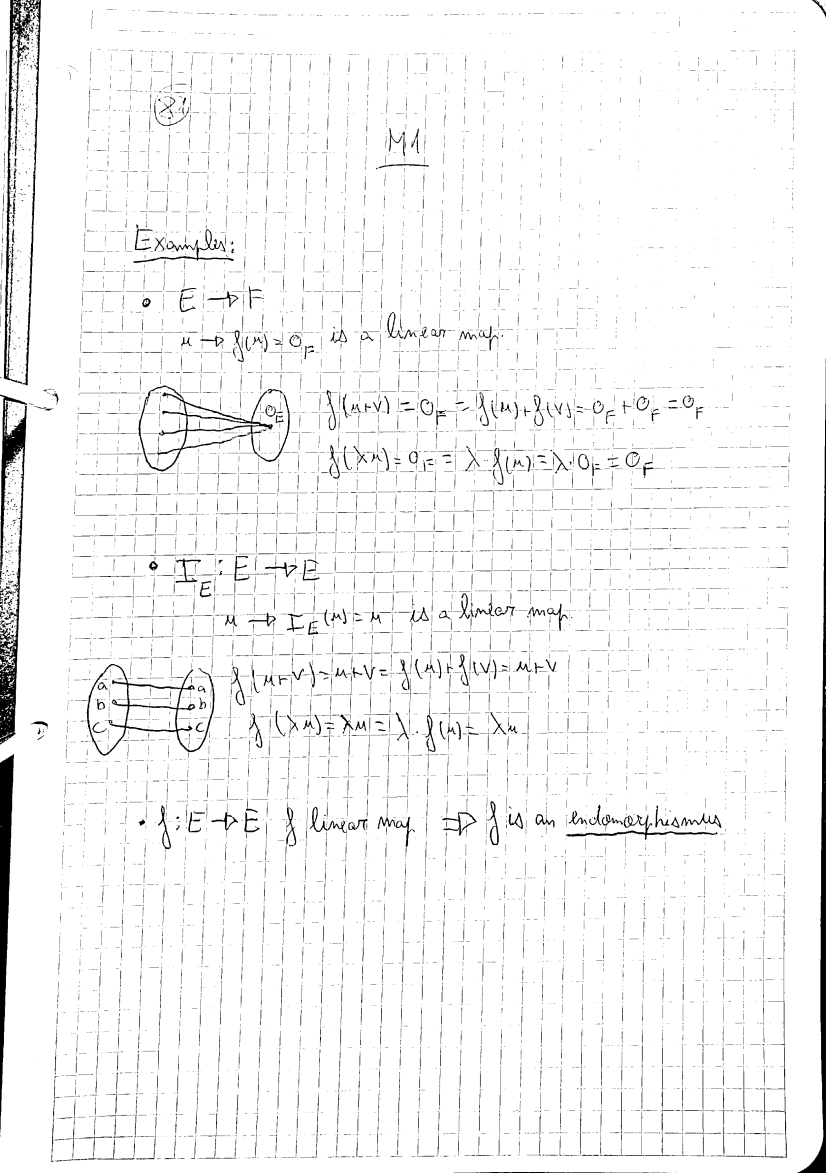 81
M1
Examples:
• E → F
u → f(u) = 0_F is a linear map.
0_F
f(u+v) = 0_F = f(u) + f(v) = 0_F + 0_F = 0_F
f(λu) = 0_F = λ · f(u) = λ · 0_F = 0_F
• I_E : E → E
u → I_E(u) = u is a linear map
a a
b b
c c
f(u+v) = u+v = f(u) + f(v) = u+v
f(λu) = λu = λ · f(u) = λu
• f : E → E f linear map ⇒ f is an endomorphismus